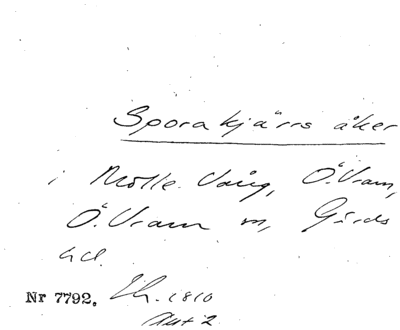 Sporakjärrs åker
i Mölle Vång, Ö. Vram,
Ö. Vram sn, Gärds
hd.
Nr 7792. Eh. 1810
Akt 2